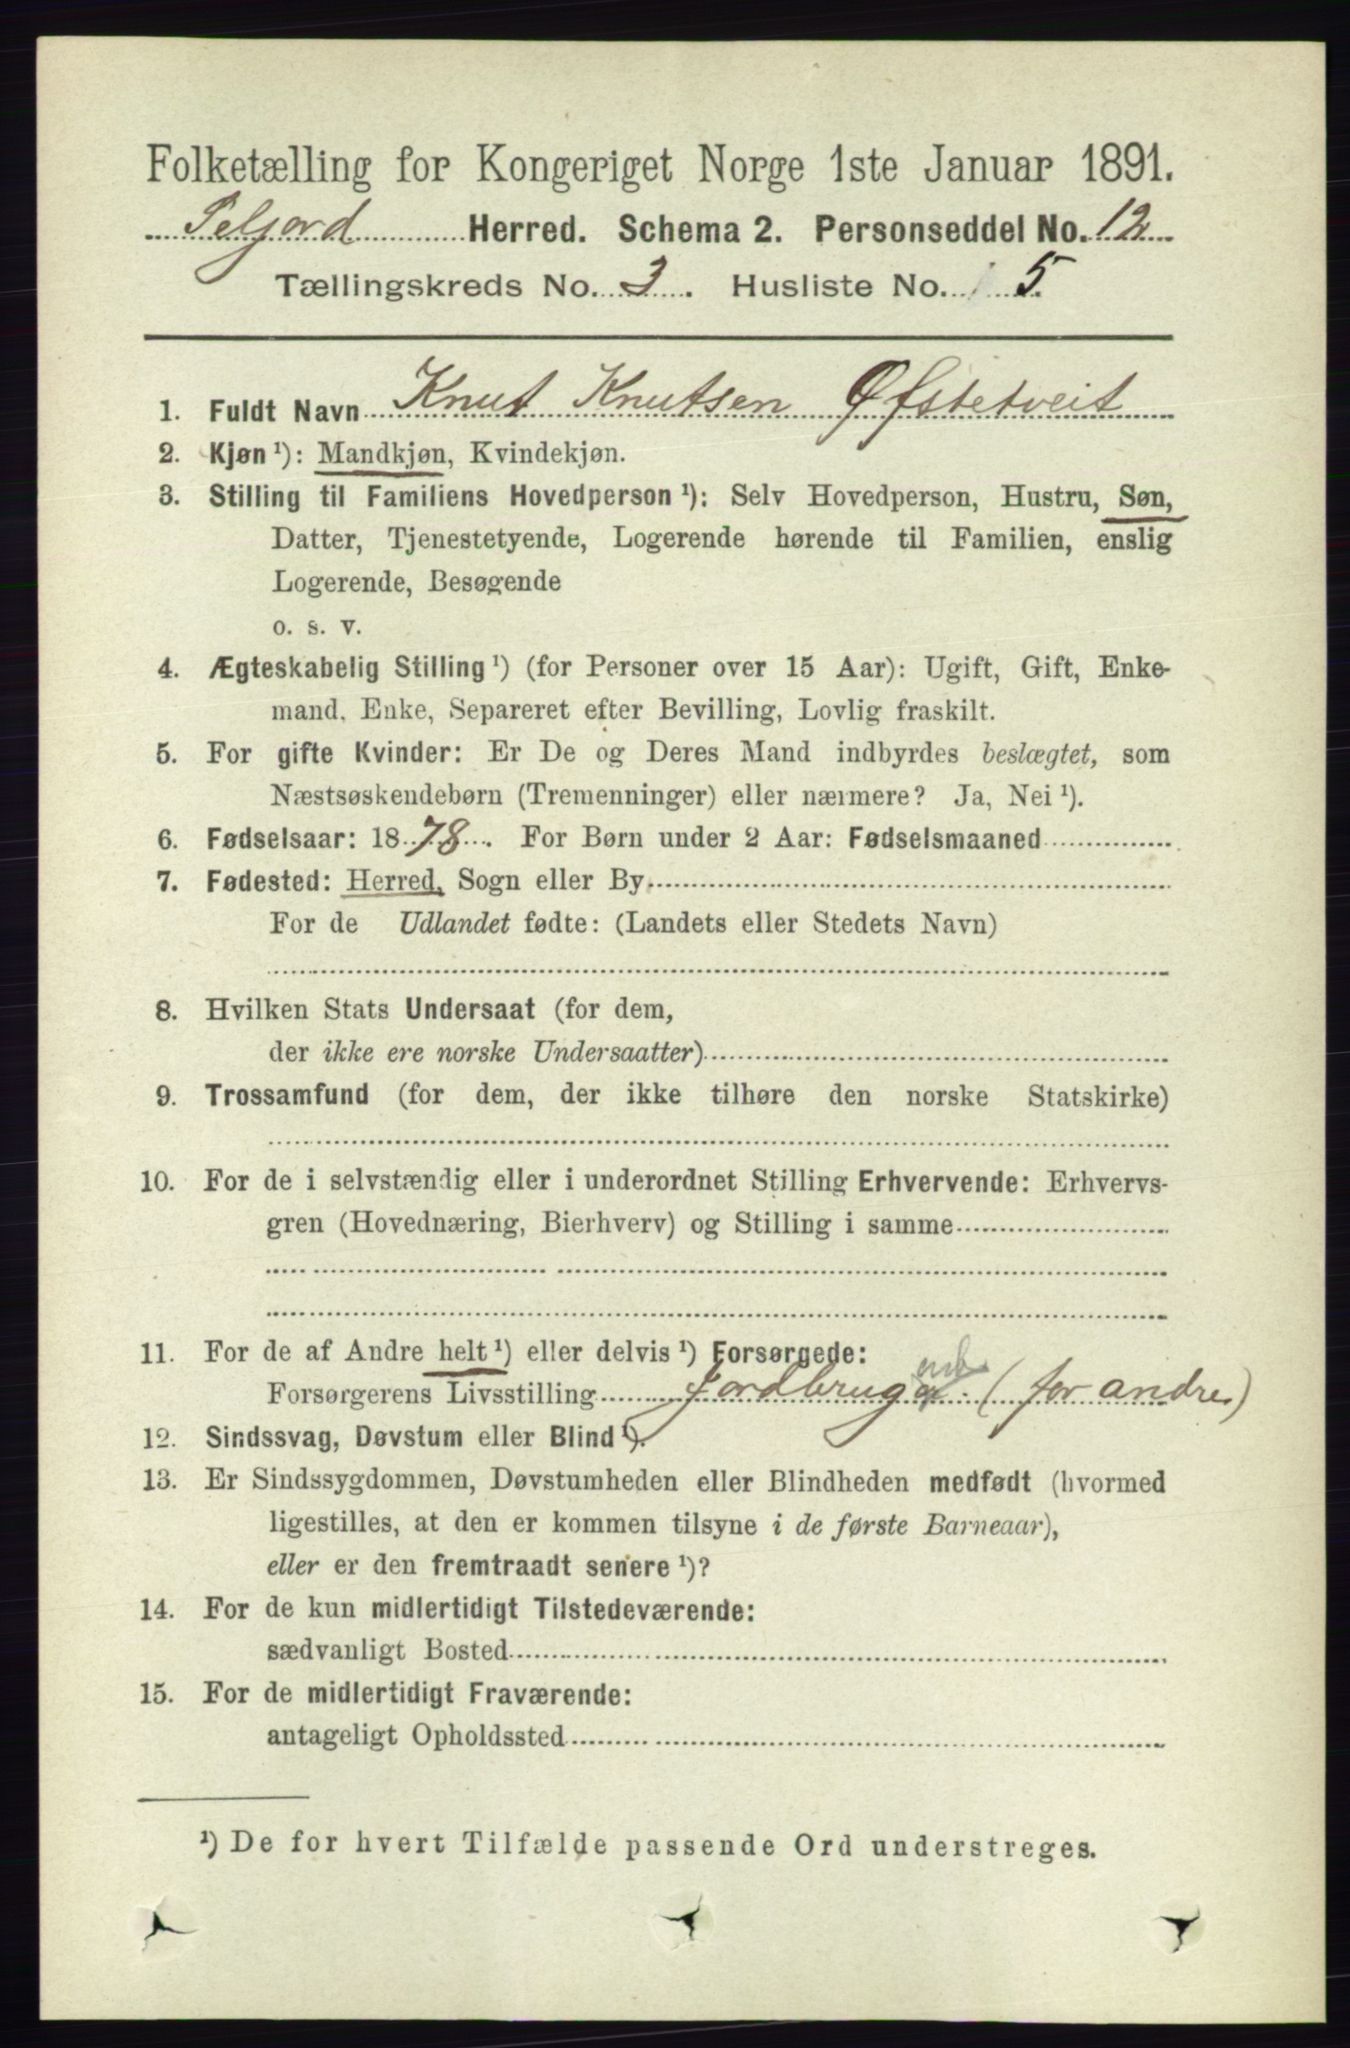 Folketælling for Kongeriget Norge 1ste Januar 1891.
Seljord Herred. Schema 2. Personseddel No. 12
Tællingskreds No. 3. Husliste No. 5.
1. Fuldt Navn Knut Knutsen Øfstetveit
2. Kjøn ¹): Mandkjøn, Kvindekjøn.
3. Stilling til Familiens Hovedperson ¹): Selv Hovedperson, Hustru, Søn,
Datter, Tjenestetyende, Logerende hørende til Familien, enslig
Logerende, Besøgende
o. s. v.
4. Ægteskabelig Stilling ¹) (for Personer over 15 Aar): Ugift, Gift, Enke-
mand, Enke, Separeret efter Bevilling, Lovlig fraskilt.
5. For gifte Kvinder: Er De og Deres Mand indbyrdes beslægtet, som
Næstsøskendebørn (Tremenninger) eller nærmere? Ja, Nei ¹).
6. Fødselsaar: 1878. For Børn under 2 Aar: Fødselsmaaned
7. Fødested: Herred, Sogn eller By
For de Udlandet fødte: (Landets eller Stedets Navn)
8. Hvilken Stats Undersaat (for dem,
der ikke ere norske Undersaatter)
9. Trossamfund (for dem, der ikke tilhøre den norske Statskirke)
10. For de i selvstændig eller i underordnet Stilling Erhvervende: Erhvervs-
gren (Hovednæring, Bierhverv) og Stilling i samme
11. For de af Andre helt ¹) eller delvis ¹) Forsørgede:
Forsørgerens Livsstilling Jordbrug (for andre)
12. Sindssvag, Døvstum eller Blind ¹).
13. Er Sindssygdommen, Døvstumheden eller Blindheden medfødt (hvormed
ligestilles, at den er kommen tilsyne i de første Barneaar),
eller er den fremtraadt senere ¹)?
14. For de kun midlertidigt Tilstedeværende:
sædvanligt Bosted
15. For de midlertidigt Fraværende:
antageligt Opholdssted
¹) De for hvert Tilfælde passende Ord understreges.